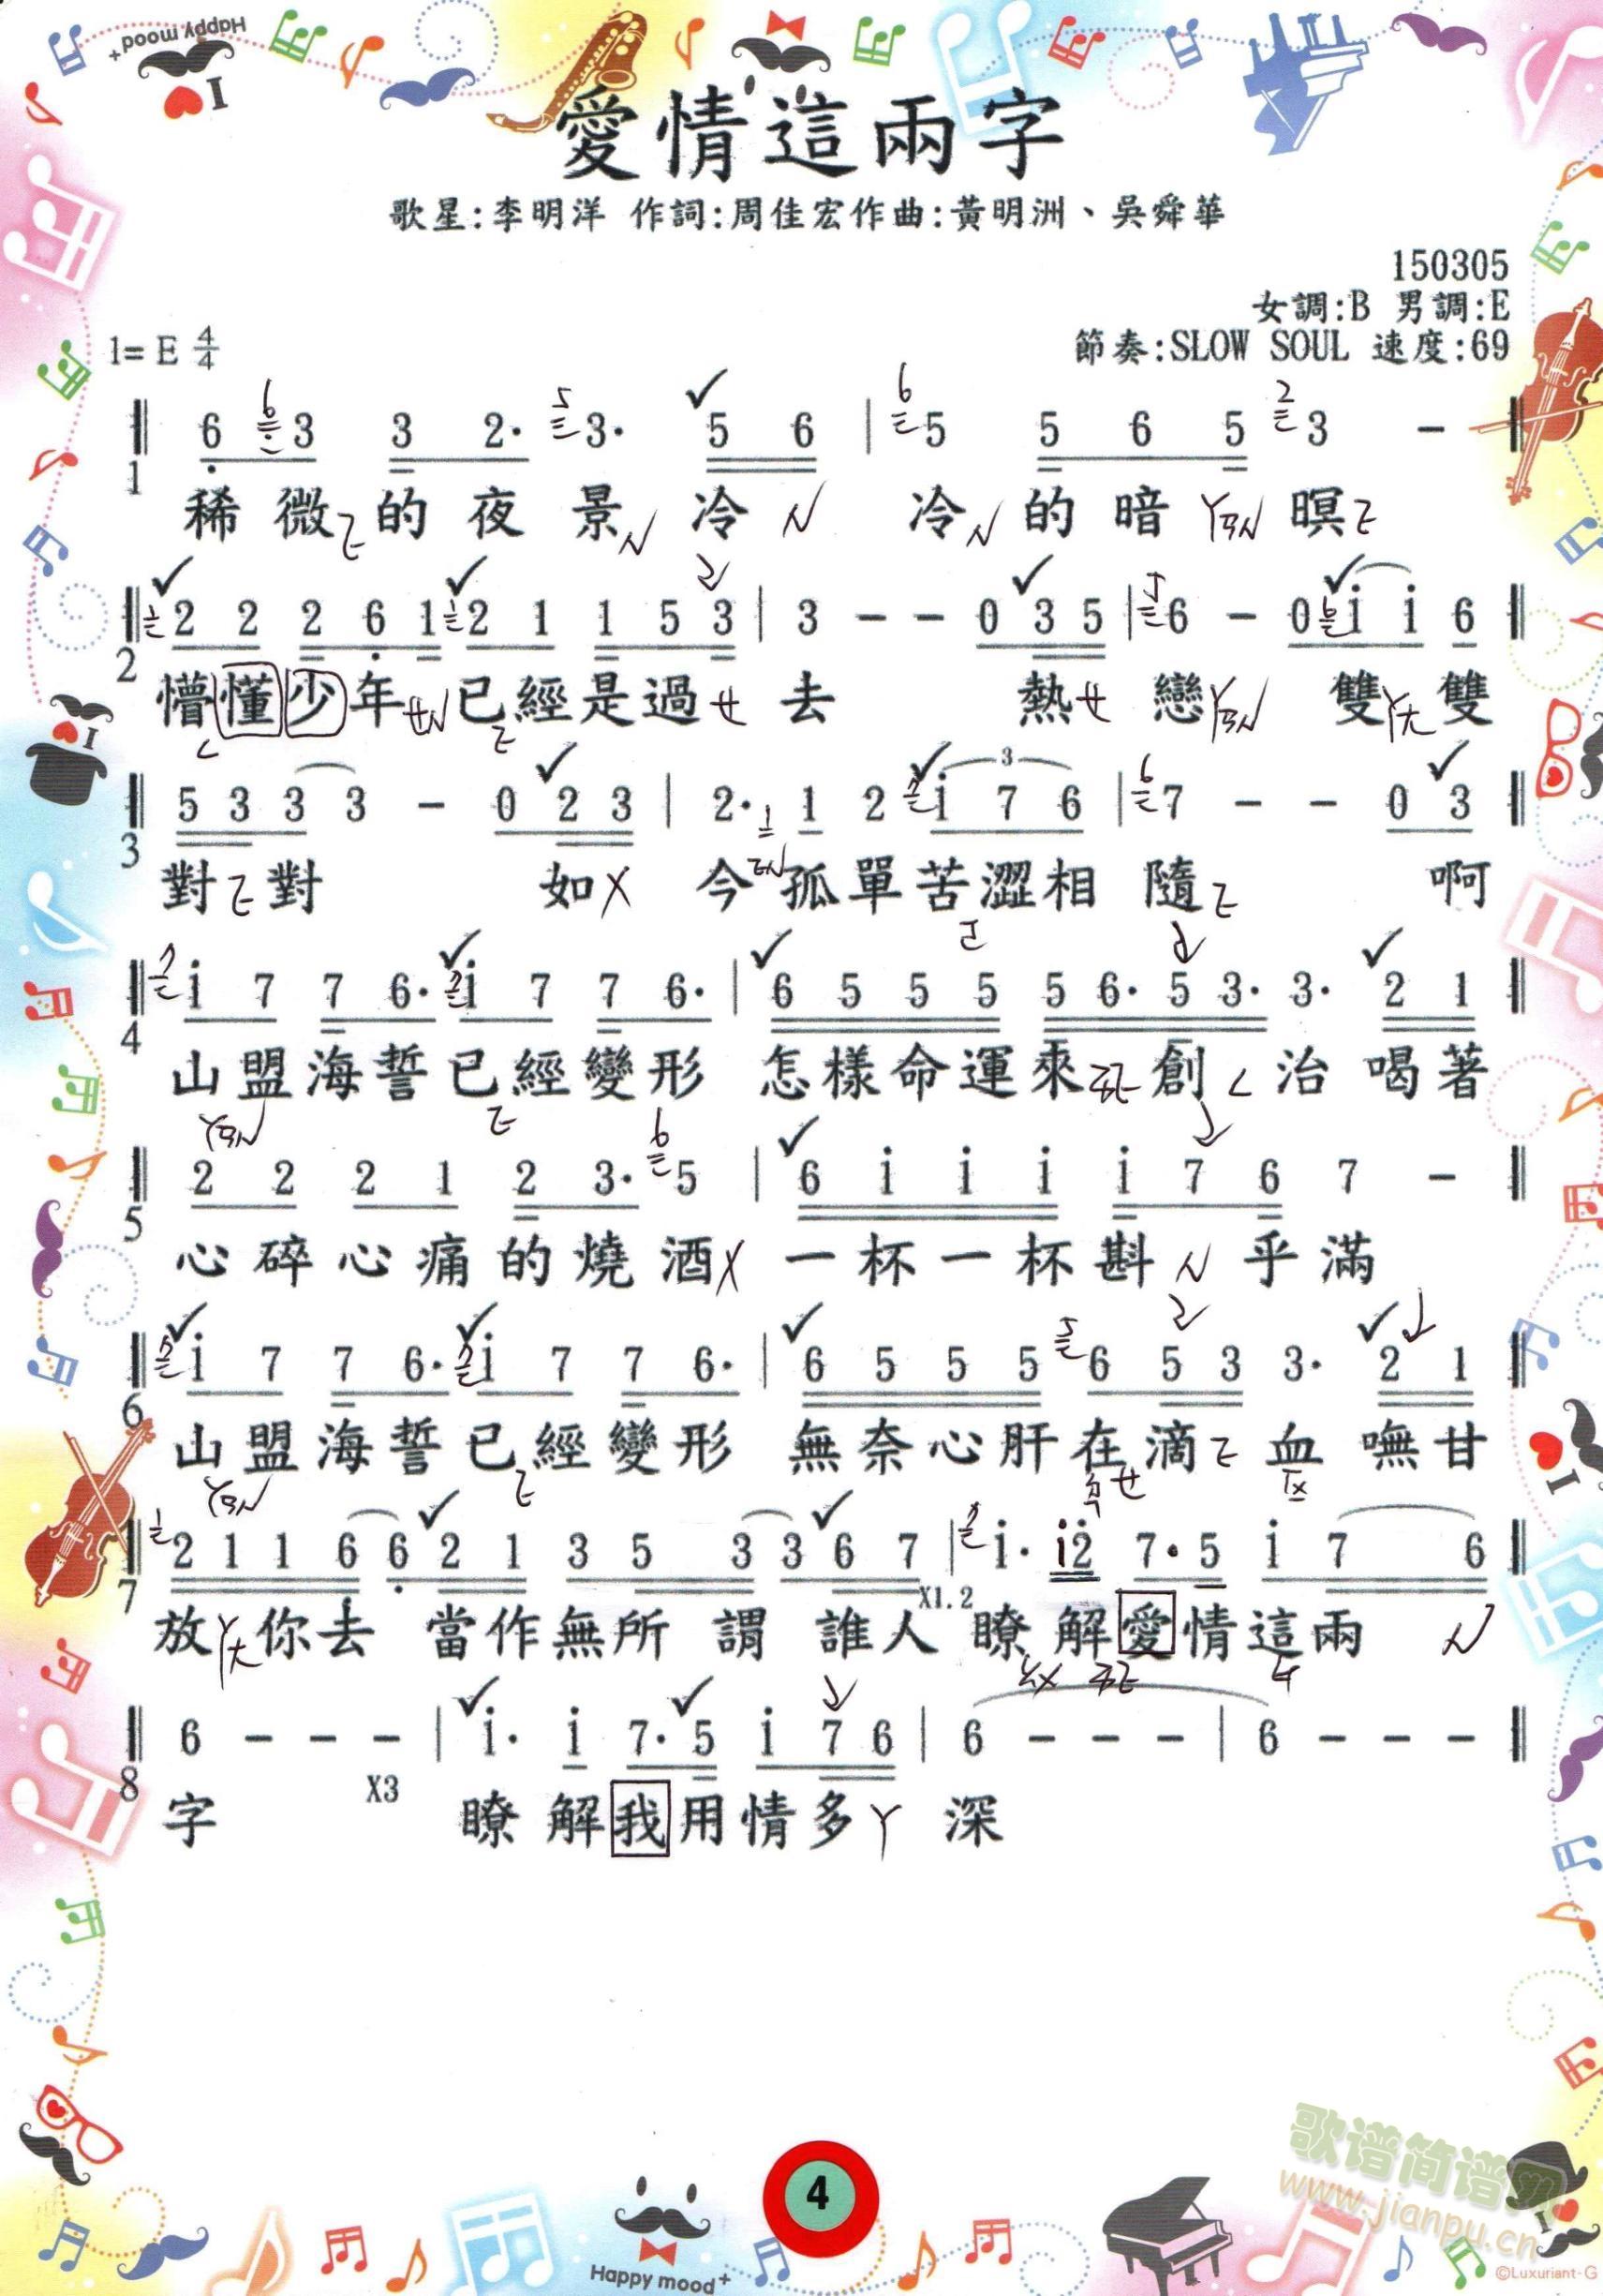 Happy mood+
I
愛情這兩字
歌星:李明洋 作詞:周佳宏作曲:黃明洲、吳舜華
150305
女調:B 男調:E
1= E 4/4 節奏:SLOW SOUL 速度:69
6 3 3 2· 3· 5 6 | 5 5 6 5 3 -
1
稀微的夜景冷 冷的暗暝
2 2 2 6 1 2 1 1 5 3 | 3 - - 0 3 5 | 6 - 0 i i 6
2
懵懂少年已經是過去 熱戀 雙雙
5 3 3 3 - 0 2 3 | 2· 1 2 i 7 6 | 7 - - 0 3
3
對對 如今孤單苦澀相隨 啊
i 7 7 6· i 7 7 6· | 6 5 5 5 5 6· 5 3· 3· 2 1
4
山盟海誓已經變形 怎樣命運來創治 喝著
2 2 2 1 2 3· 5 | 6 i i i i 7 6 7 -
5
心碎心痛的燒酒 一杯一杯斟乎滿
i 7 7 6· i 7 7 6· | 6 5 5 5 6 5 3 3· 2 1
6
山盟海誓已經變形 無奈心肝在滴血 嘸甘
2 1 1 6 6 2 1 3 5 3 3 6 7 | i· i 2 7· 5 i 7 6
7
X1.2
放你去 當作無所謂 誰人瞭解愛情這兩
6 - - - | i· i 7· 5 i 7 6 | 6 - - - | 6 - - -
8
X3
字 瞭解我用情多深
4
Happy mood+
歌谱简谱网
www.jianpu.cn
©Luxuriant-G